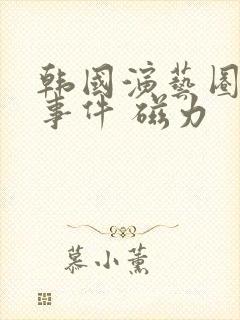 韩国演艺圈
事件 磁力
慕小薰